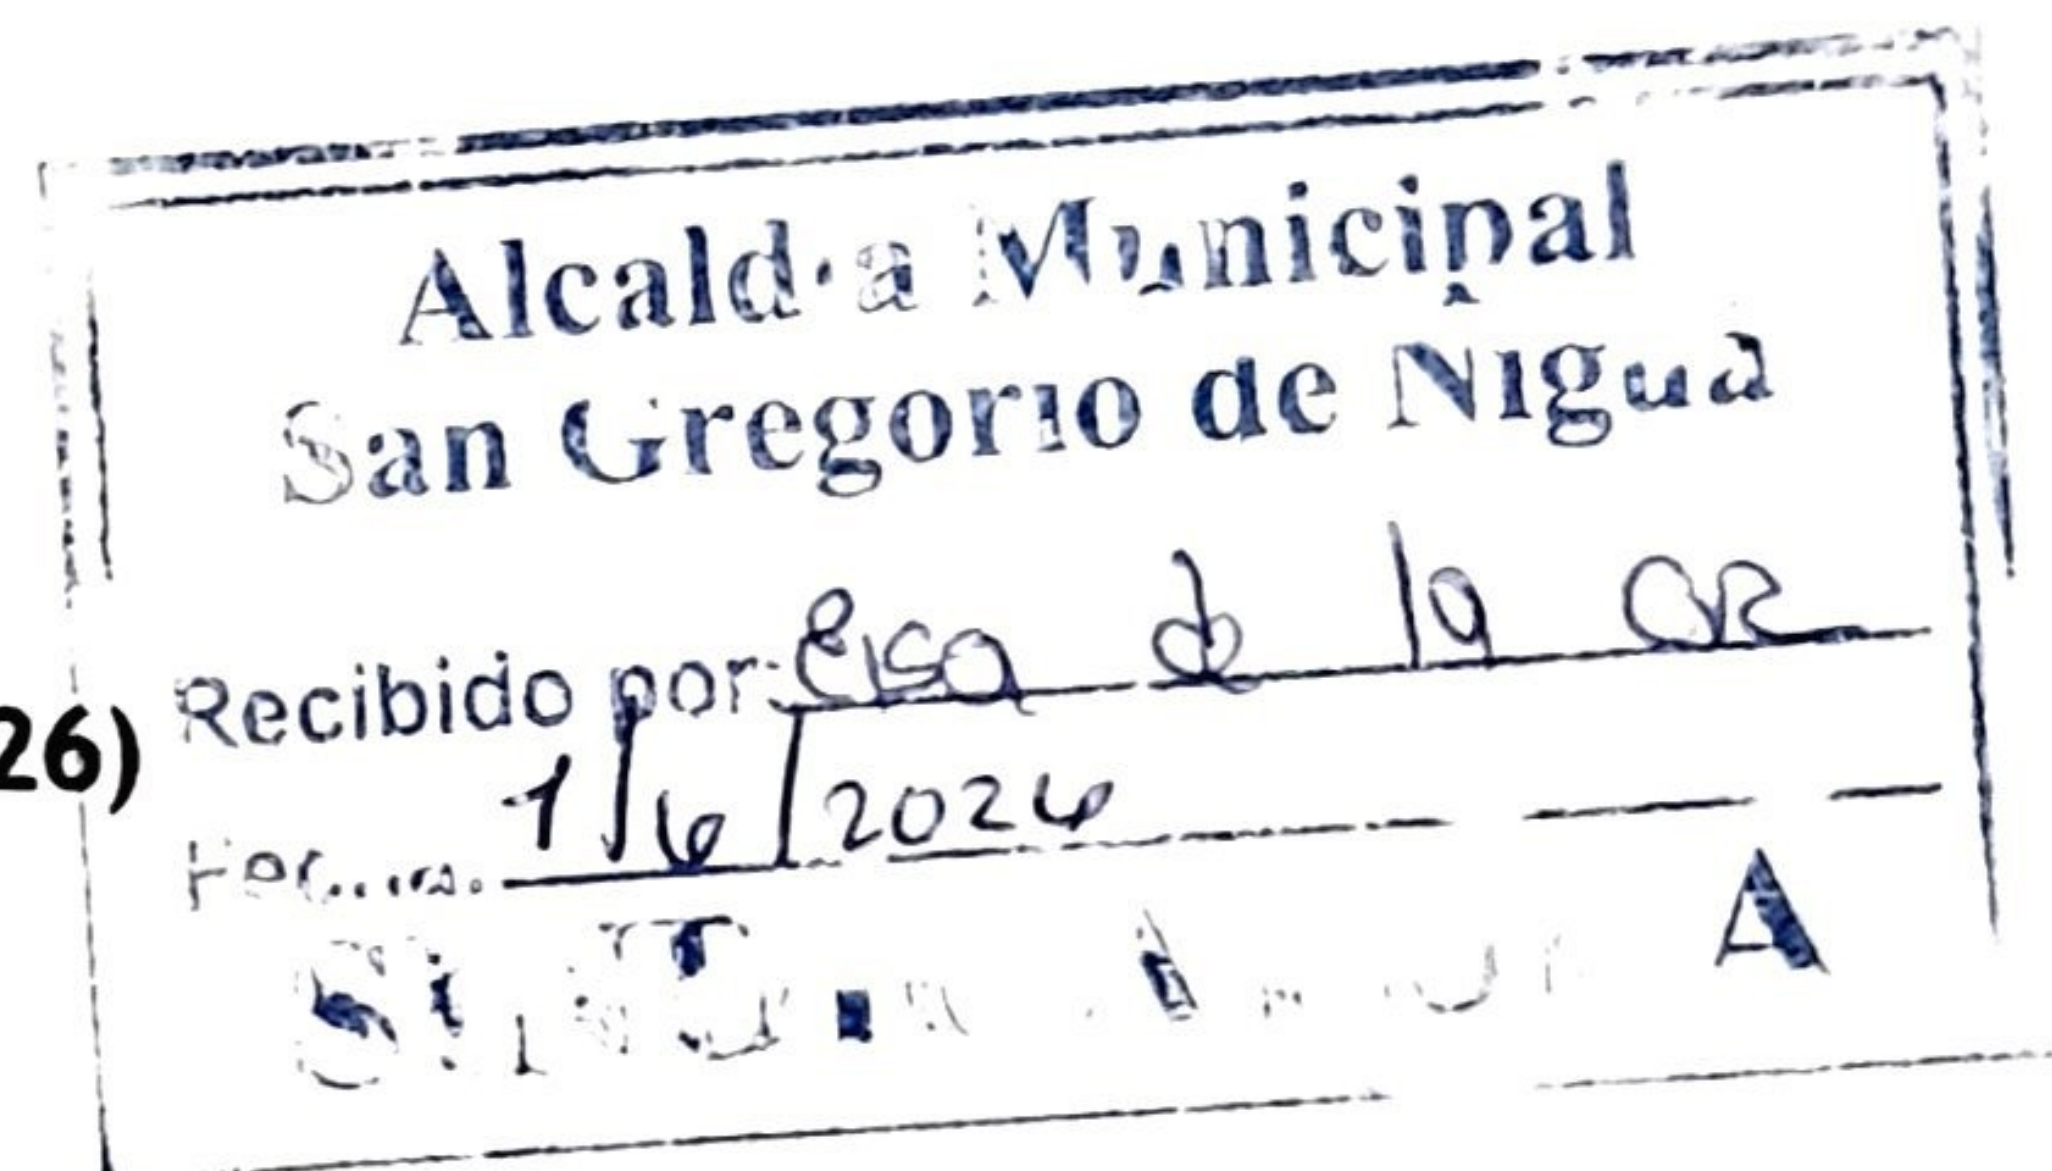 Alcaldía Municipal
San Gregorio de Nigua
Recibido por: elsa de la CR
26)
1/6/2026